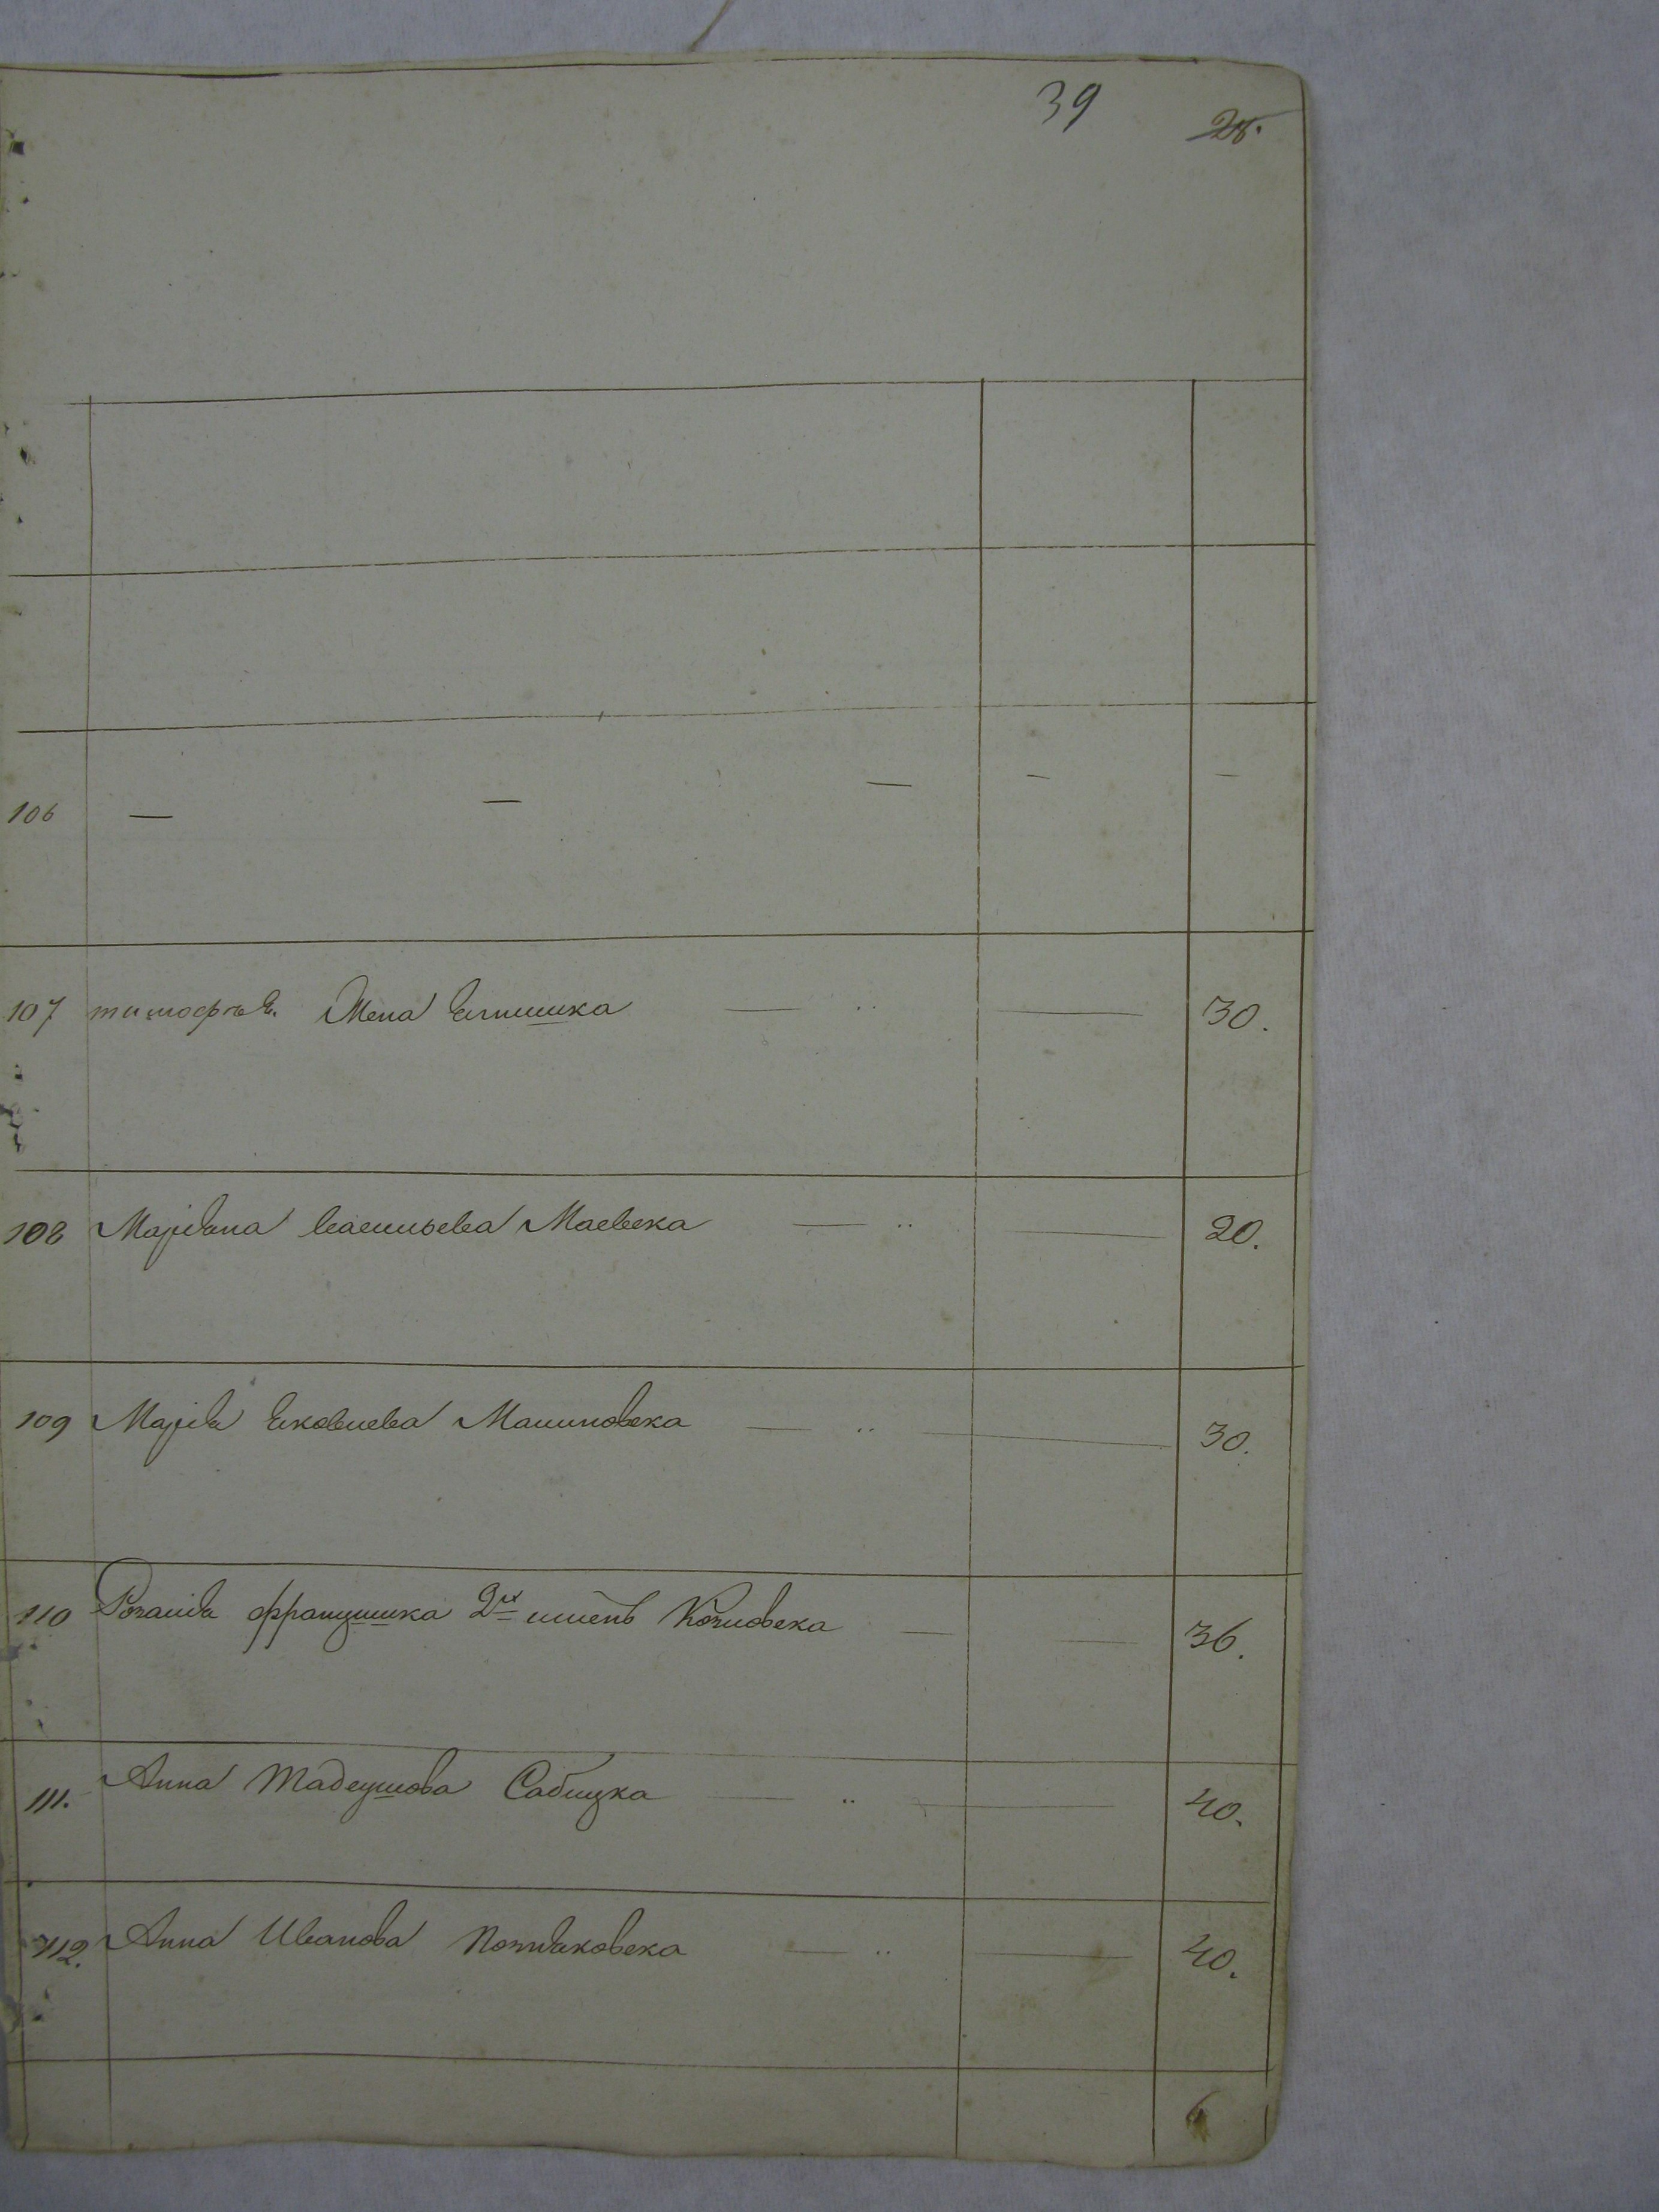 39
28.
106 — — — — —
107 тимофѣев. Жена — .. — 30.
108 Маріяна васильева Маевска — .. — 20.
109 Марія яковлева Малиновска — .. — 30.
110 Розалія францишка 2х именъ Козловска — — 36.
111. Анна Тадеушова Сабицка — .. — 40.
112. Анна Иванова Позняковска — .. — 40.
6